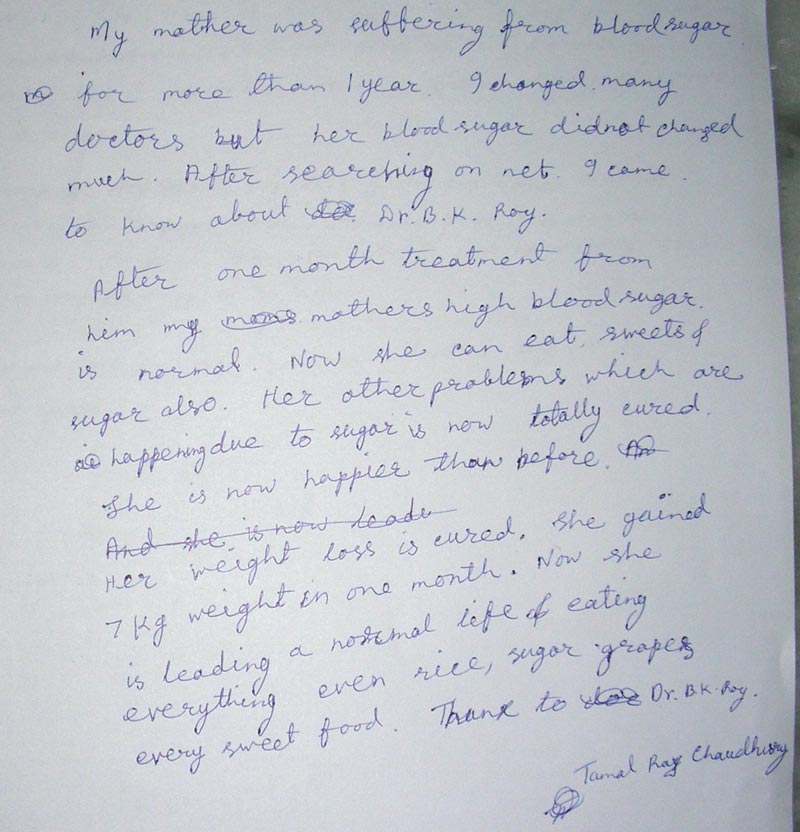 My mother was suffering from blood sugar.
for more than 1 year. I changed many
doctors but her blood sugar didnot changed
much. After searching on net. I came.
to know about Dr. B. K. Roy.
After one month treatment from
him my mothers high blood sugar.
is normal. Now she can eat sweets &
sugar also. Her other problems which are
happening due to sugar is now totally cured.
She is now happier than before.
And she is now leade
Her weight loss is cured. She gained
7 Kg weight in one month. Now she
is leading a normal life & eating
everything even rice, sugar grapes
every sweet food. Thank to Dr. B.K. Roy.
Tamal Ray Chaudhury